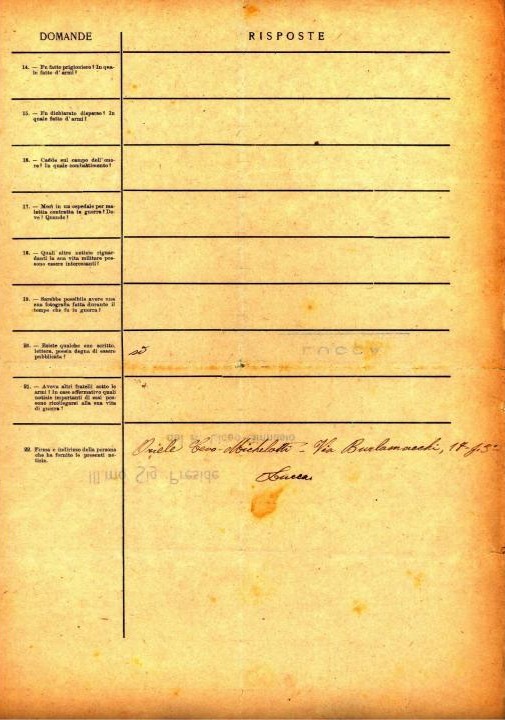 DOMANDE
RISPOSTE
14. — Fu fatto prigioniero? In qua-
le fatto d'armi?
15. — Fu dichiarato disperso? In
quale fatto d'armi?
16. — Cadde sul campo dell'ono-
re? In quale combattimento?
17. — Morì in un ospedale per ma-
lattia contratta in guerra? Do-
ve? Quando?
18. — Quali altre notizie riguar-
danti la sua vita militare pos-
sono essere interessanti?
19. — Sarebbe possibile avere una
sua fotografia fatta durante il
tempo che fu in guerra?
20. — Esiste qualche suo scritto,
lettera, poesia degna di essere
pubblicata?
21. — Aveva altri fratelli sotto le
armi? In caso affermativo quali
notizie importanti di essi pos-
sono ricollegarsi alla sua vita
di guerra?
22. Firma e indirizzo della persona
che ha fornito le presenti no-
tizie.
Michelotti - Via Burlamacchi, 18
Lucca
LUCCA
del R. Liceo Ginnasio
Ill.mo Sig. Preside